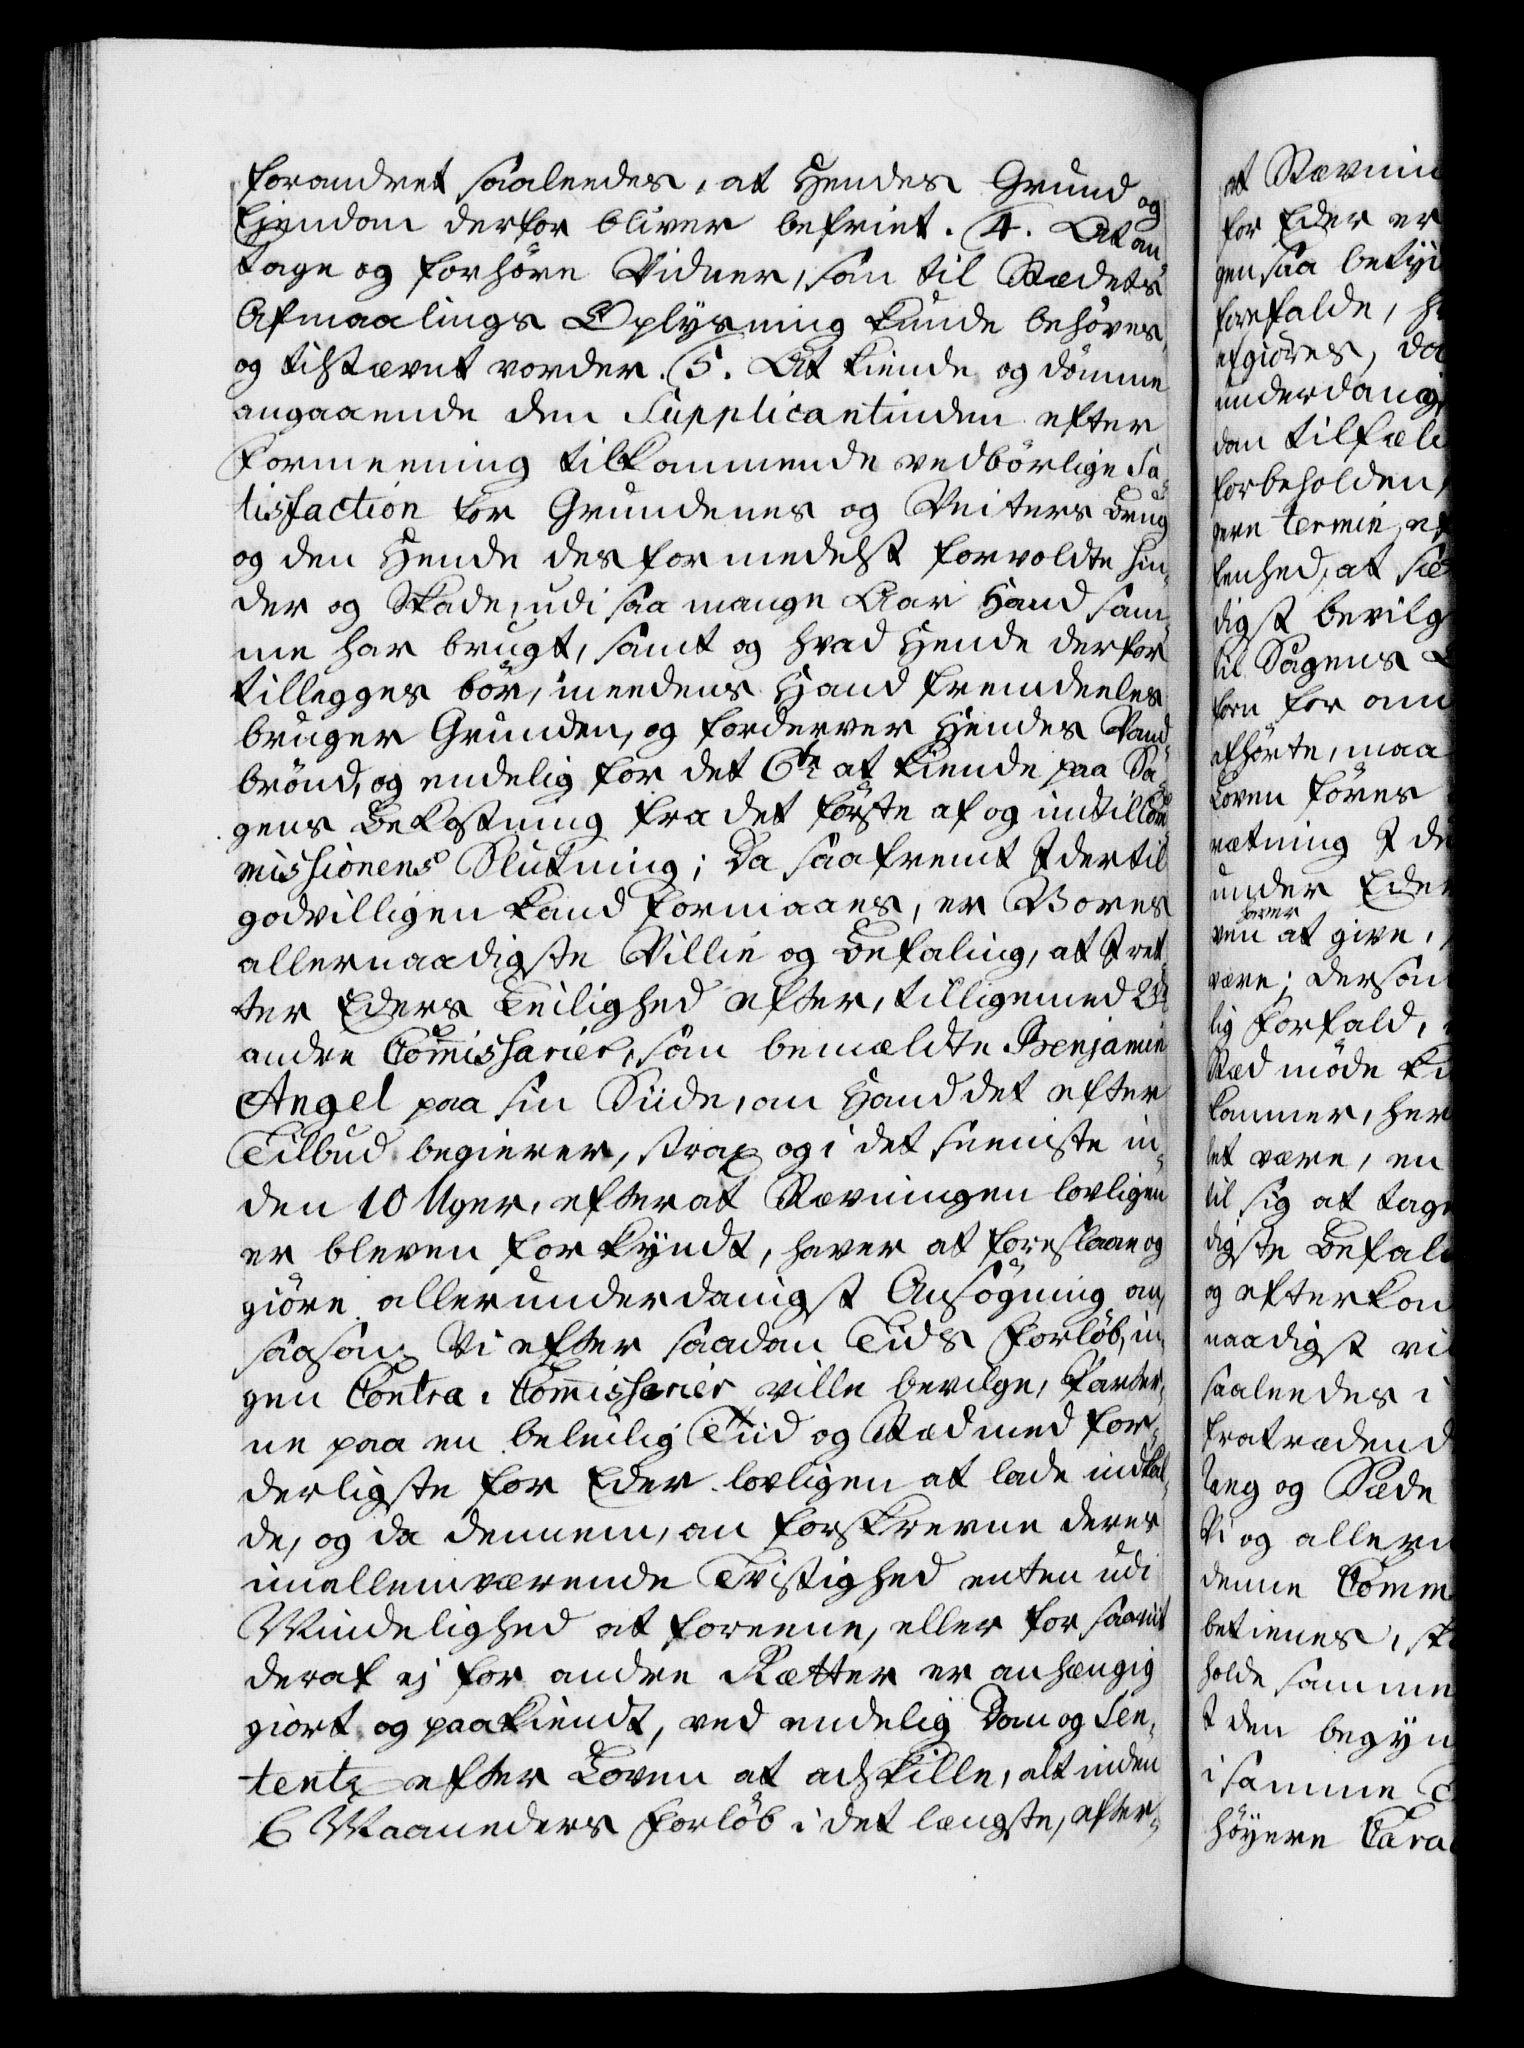 forandret saaleedes, at Hendes Grund og
Ejendom derfor bliver befriet. 4. At an-
tage og forhøre Vidner, som til Stædets
Afmaalings Oplysning kunde behøves,
og tilstævnt vorder. 5. At kiende og dømme
angaaende den Supplicantinden efter
Formeening tilkommende vedbørlige Sa-
tisfaction for Grundenes og Veiters Brug
og den Hende desformedelst forvoldte Hin-
der og Skade, udi saa mange Aar Hand sam-
me har brugt, samt og hvad Hende derfor
tillegges bør, imeedens Hand fremdeeles
bruger Grunden, og forderver Hendes Vand-
brønd, og endelig for det 6te at kiende paa Sa-
gens Bekostning fra det første af og indtil Com-
missionens Slutning; Da saafremt I dertil
godvilligen kand formaaes, er Vores
allernaadigste Villie og Befaling, at I ret-
ter Eders Leilighed efter, tilligemed 2de
andre Commissarier, som bemældte Benjamin
Angel paa sin Siide, om Hand det efter
Tilbud begierer, strax og i det seeniste in-
den 10 Uger, efter at Stævningen lovligen
er bleven forkyndt, haver at foreslaae og
giøre allerunderdanigst Ansøgning om,
saasom Vi efter saadan Tids Forløb, in-
gen Contra-Commissarier ville bevilge, Parter-
ne paa en beleilig Tiid og Stæd med for-
derligste for Eder lovligen at lade indkal-
de, og da dennem, om forskrevne deres
imellemværende Tvistighed enten udi
Mindelighed at foreene, eller for saavit
deraf ej for andre Rætter er anhængig
giort og paakiendt, ved endelig Dom og Sen-
tentz efter Loven at adskille, alt inden
6 Maaneders Forløb i det længste, efter-
at Stævnin
for Eder er
gen saa betyd
forefalde, h
afgiøres, da
underdanig
dan tilfæl
forbeholden,
gere termin ef
lenhed, at
digst bevilg
til Sagens
forn for om
afhørte, maa
Loven føres
rætning I d
under Eder
haver
ven at give,
være; Dersom
lig Forfald,
Stæd møde k
kommer, her
let være, en
til sig at tage
digste Befal
og efterkom
naadigst vi
saaleedes i
fratrædend
lang og Stæde
Vi og allern
denne Comm
betienes, sk
holde samme
I den begyn
i samme
høyere Cara